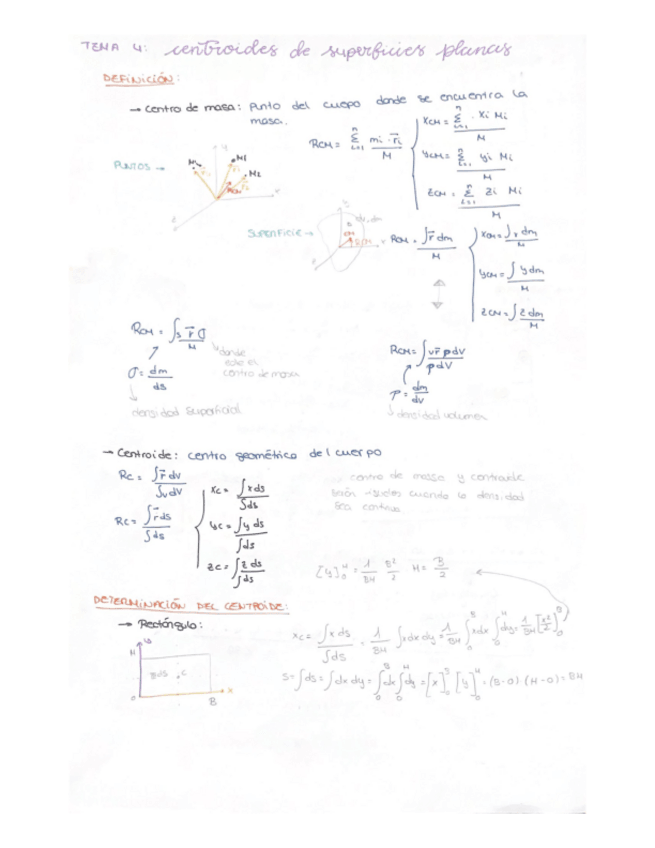 TEMA 4: centroides de superficies planas
DEFINICIÓN:
→ Centro de masa: Punto del cuerpo donde se encuentra la
masa.
R_CM = Σ_{i=1}^{n} mi · r⃗i / M
X_CM = Σ_{i=1}^{n} · Xi Mi / M
Y_CM = Σ_{i=1}^{n} Yi Mi / M
Z_CM = Σ_{i=1}^{n} Zi Mi / M
PUNTOS →
M1
M2
SUPERFICIE →
R_CM = ∫ r⃗ dm / M
X_CM = ∫ x dm / M
Y_CM = ∫ y dm / M
Z_CM = ∫ z dm / M
R_CM = ∫_S r⃗ σ / M
donde
este el
centro de masa
σ = dm / ds
densidad superficial
R_CM = ∫ v r⃗ ρ dV / ρ dV
ρ = dm / dv
densidad volumen
→ Centroide: centro geométrico del cuerpo
R_C = ∫ r⃗ dv / ∫_v dV
R_C = ∫ r⃗ ds / ∫ ds
X_C = ∫ x ds / ∫ ds
Y_C = ∫ y ds / ∫ ds
Z_C = ∫ z ds / ∫ ds
centro de masa y centroide
cuando la densidad
sea
[y]_0^H = 1/BH B²/2 H = B/2
DETERMINACIÓN DEL CENTROIDE:
→ Rectángulo:
X_C = ∫ x ds / ∫ ds = 1/BH ∫ x dx dy = 1/BH ∫_0^B x dx ∫_0^H dy = 1/BH [x²/2]_0^B
S = ∫ ds = ∫ dx dy = ∫_0^B dx ∫_0^H dy = [x]_0^B [y]_0^H = (B-0) (H-0) = BH
H
C
0
B
x